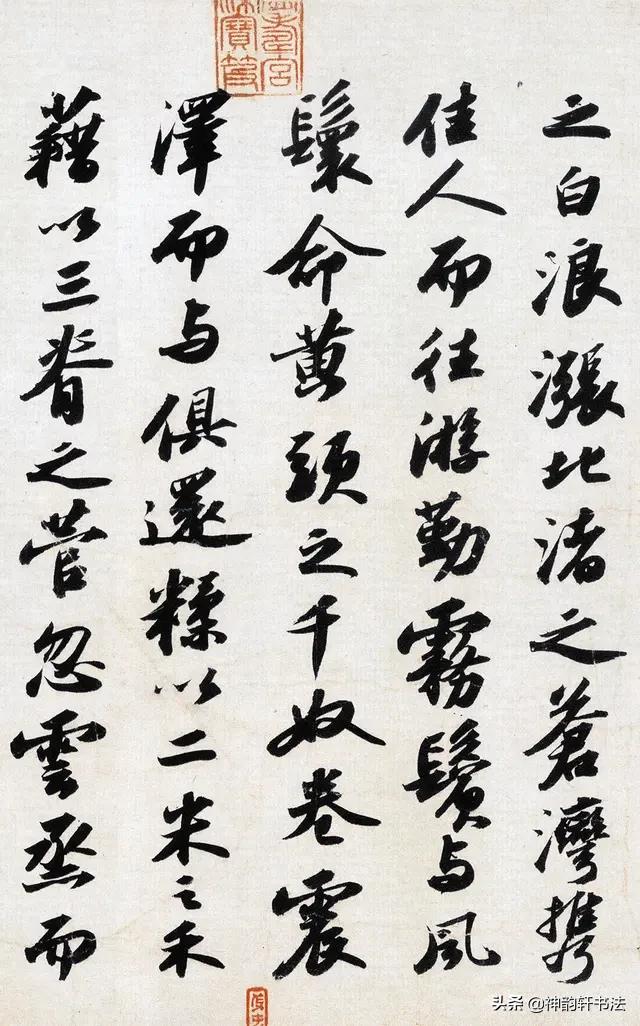 之白浪漲北渚之蒼灣携
佳人而往游勤霧鬢与風
鬟命黃頭之千奴卷震
澤而与俱還糅以二米之禾
藉以三脊之菅忽雲烝而
头条 @神韵轩书法